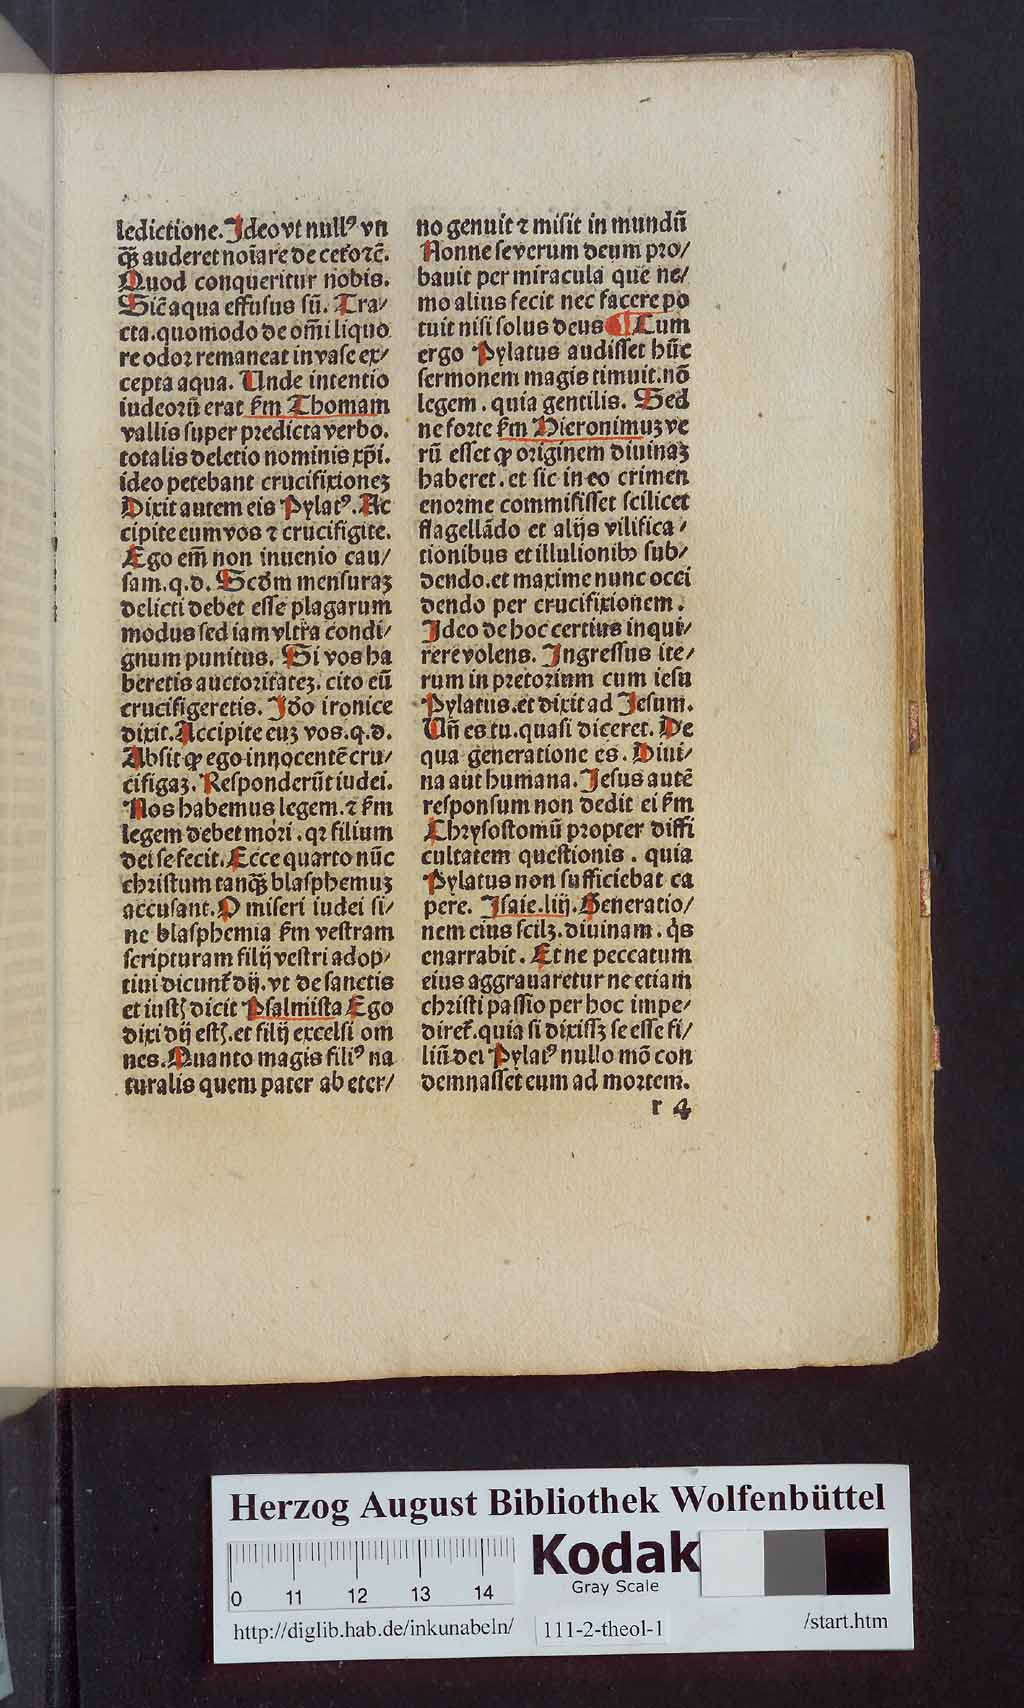 ledictione. Ideo vt null⁹ vn
q̄ꝫ auderet noīare de ceťorē.
Quod conqueritur nobis.
Sicē aqua effusus sū. Tra⸗
cta. quomodo de om̄i liquo
re odoꝛ remaneat in vase ex⸗
cepta aqua. Unde intentio
iudeoꝛū erat ẜm Thomam
vallis super pꝛedicta verbo.
totalis deletio nominis xp̄i.
ideo petebant crucifixioneꝫ
Dixit autem eis Pylat⁹. Ac
cipite eum vos ⁊ crucifigite.
Ego em̄ non inuenio cau⸗
sam. q. d. Scd̄m mensuraꝫ
delicti debet esse plagarum
modus sed iam vltra condi⸗
gnum punitus. Si vos ha
beretis auctoꝛitateꝫ. cito eū
crucifigeretis. Id̄o ironice
dixit. Accipite euꝫ vos. q. d.
Absit ꝙ ego innocentē cru⸗
cifigaꝫ. Responderūt iudei.
Nos habemus legem. ⁊ ẜm
legem debet moꝛi. qꝛ filium
dei se fecit. Ecce quarto nūc
chꝛistum tanq̄ꝫ blasphemuꝫ
accusant. O miseri iudei si⸗
ne blasphemia ẜm vestram
scripturam filij vestri adop⸗
tiui dicunť dij. vt de sanctis
et iustꝭ dicit Psalmista Ego
dixi dij estꝭ. et filij excelsi om
nes. Quanto magis fili⁹ na
turalis quem pater ab eter⸗
no genuit ⁊ misit in mundū
Nonne se verum deum pꝛo⸗
bauit per miracula que ne⸗
mo alius fecit nec facere po
tuit nisi solus deus ¶ Cum
ergo Pylatus audisset hūc
sermonem magis timuit. nō
legem. quia gentilis. Sed
ne forte ẜm Hieronimuꝫ ve
rū esset ꝙ oꝛiginem diuinaꝫ
haberet. et sic in eo crimen
enoꝛme commisisset scilicet
flagellādo et alijs vilifica⸗
tionibus et illusionibꝰ sub⸗
dendo. et maxime nunc occi
dendo per crucifixionem.
Ideo de hoc certius inqui⸗
rere volens. Ingressus ite⸗
rum in pꝛetoꝛium cum iesu
Pylatus. et dixit ad Jesum.
Un̄ es tu. quasi diceret. De
qua generatione es. Diui⸗
na aut humana. Jesus autē
responsum non dedit ei ẜm
Chꝛysostomū pꝛopter diffi
cultatem questionis. quia
Pylatus non sufficiebat ca
pere. Isaie. liij. Generatio⸗
nem eius scilꝫ. diuinam. q̇s
enarrabit. Et ne peccatum
eius aggrauaretur ne etiam
chꝛisti passio per hoc impe⸗
direť. quia si dixissꝫ se esse fi⸗
liū dei Pylat⁹ nullo mō con
demnasset eum ad moꝛtem.
r 4
Herzog August Bibliothek Wolfenbüttel
Kodak
Gray Scale
0 11 12 13 14
http://diglib.hab.de/inkunabeln/ 111-2-theol-1 /start.htm